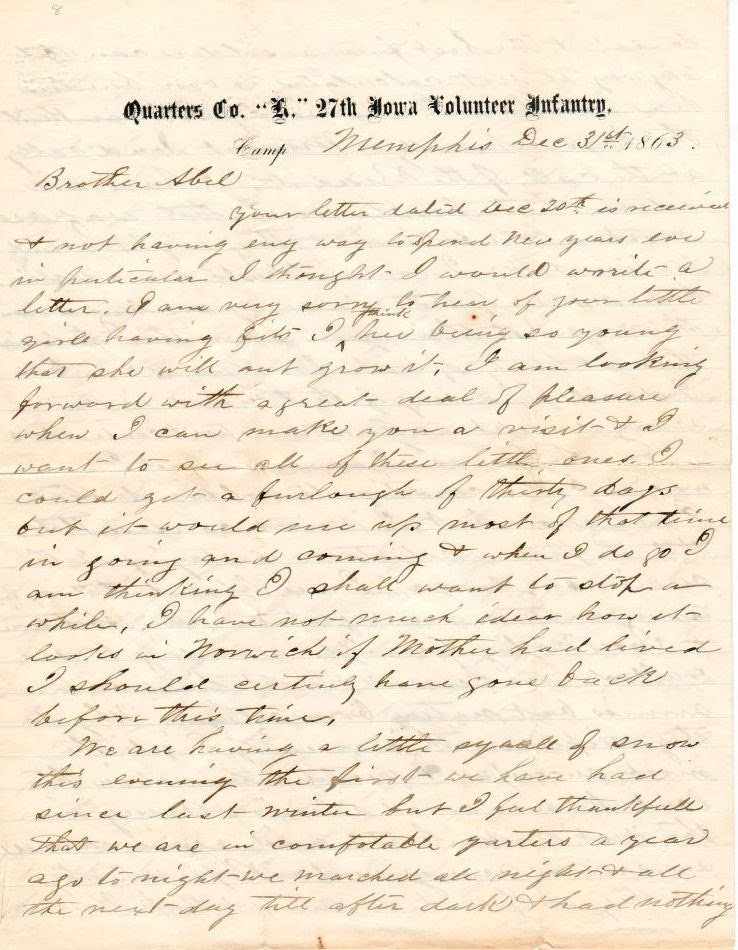 8
Quarters Co. "K." 27th Iowa Volunteer Infantry.
Camp Memphis Dec 31st 1863.
Brother Abel
your letter dated Dec 20th is received
& not having eny way to spend New years eve
in perticular I thought I would wrrite a
letter. I am very sorry to hear of your little
girls having fits I think hur being so young
that she will out grow it. I am looking
forward with a great deal of pleasure
when I can make you a visit & I
want to see all of these little ones. I
could get a furlough of thirty days
but it would use up most of that time
in going and coming & when I do go I
am thinking I shall want to stop a
while. I have not much idear how it
looks in Norwich if Mother had lived
I should certinly have gone back
before this time.
We are having a little squall of snow
this evening the first we have had
since last winter but I feel thankfull
that we are in comfotable qarters a year
ago to night we marched all night & all
the next day till after dark & had nothing